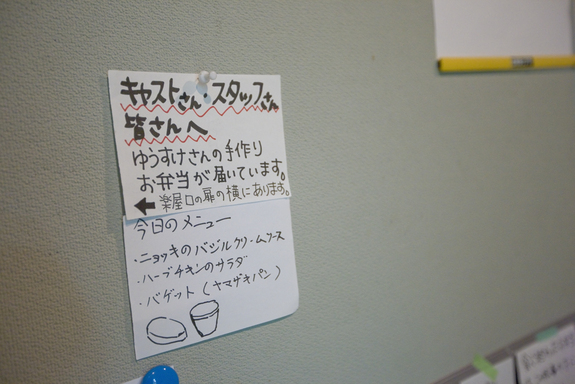 キャストさん・スタッフさん
皆さんへ
ゆうすけさんの手作り
お弁当が届いています。
← 楽屋口の扉の横にあります。
今日のメニュー
・ニョッキのバジルクリームソース
・ハーブチキンのサラダ
・バゲット(ヤマザキパン)